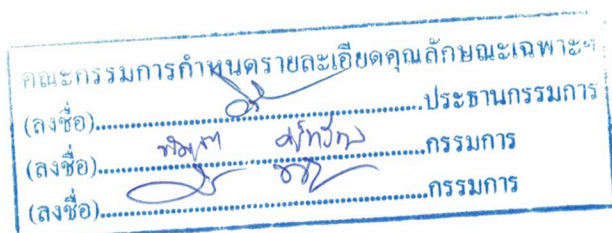 คณะกรรมการกำหนดรายละเอียดคุณลักษณะเฉพาะฯ
(ลงชื่อ)...........................................ประธานกรรมการ
(ลงชื่อ)...........................................กรรมการ
(ลงชื่อ)...........................................กรรมการ